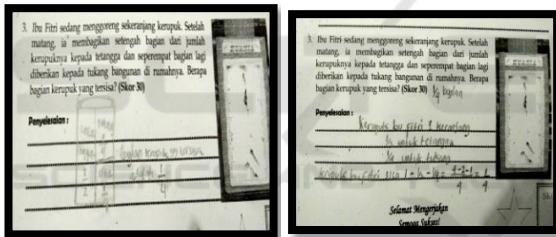 3. Ibu Fitri sedang menggoreng sekeranjang kerupuk. Setelah
matang, ia membagikan setengah bagian dari jumlah
kerupuknya kepada tetangga dan seperempat bagian lagi
diberikan kepada tukang bangunan di rumahnya. Berapa
bagian kerupuk yang tersisa? (Skor 30)
Penyelesaian :
3. Ibu Fitri sedang menggoreng sekeranjang kerupuk. Setelah
matang, ia membagikan setengah bagian dari jumlah
kerupuknya kepada tetangga dan seperempat bagian lagi
diberikan kepada tukang bangunan di rumahnya. Berapa
bagian kerupuk yang tersisa? (Skor 30) 1/4 bagian
Penyelesaian :
Kerupuk bu fitri 1 keranjang
1/2 untuk tetangga
1/4 untuk tukang
kerupuk bu fitri sisa 1 - 1/2 - 1/4 = 4-2-1/4 = 1/4
Selamat Mengerjakan
Semoga Sukses!